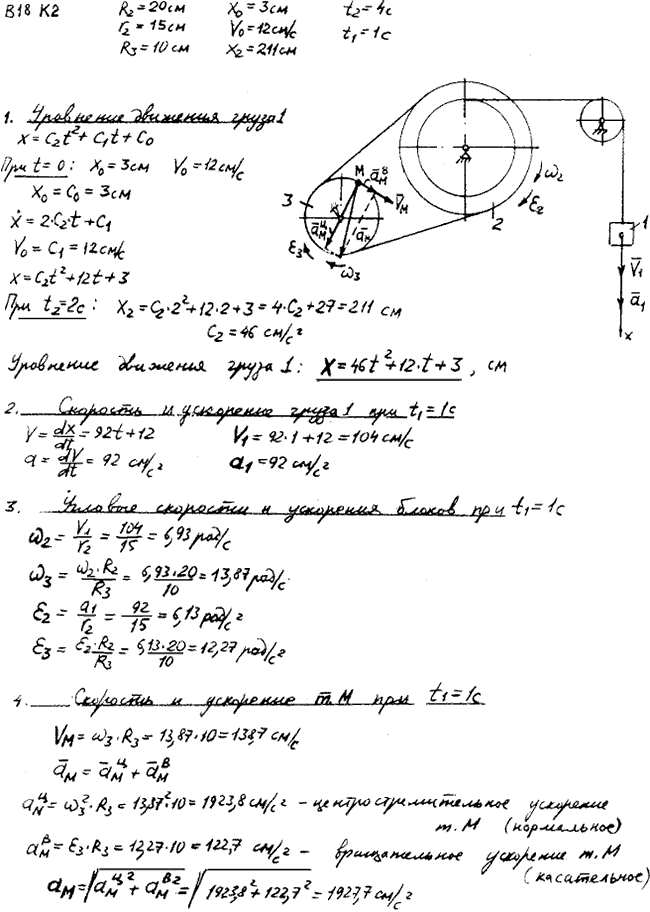 В18 К2 R₂=20см X₀=3см t₂=4с
r₂=15см V₀=12см/с t₁=1с
R₃=10см X₂=211см
1. Уравнение движения груза 1
X=C₂t²+C₁t+C₀
При t=0: X₀=3см V₀=12см/с
X₀=C₀=3см
ẋ=2·C₂t+C₁
V₀=C₁=12см/с
X=C₂t²+12t+3
При t₂=2с: X₂=C₂·2²+12·2+3=4·C₂+27=211 см
C₂=46 см/с²
Уравнение движения груза 1: X=46t²+12·t+3, см
M
a̅ᴍᴮ
V̅ᴍ
3
a̅ᴍᶣ
a̅ᴍ
ε₃
ω₃
ω₂
ε₂
2
1
V̅₁
a̅₁
x
2. Скорость и ускорение груза 1 при t₁=1с
V=dx/dt=92t+12 V₁=92·1+12=104см/с
a=dV/dt=92 см/с² a₁=92см/с²
3. Угловые скорости и ускорения блоков при t₁=1с
ω₂=V₁/r₂=104/15=6,93рад/с
ω₃=ω₂·R₂/R₃=6,93·20/10=13,87рад/с
ε₂=a₁/r₂=92/15=6,13рад/с²
ε₃=ε₂·R₂/R₃=6,13·20/10=12,27рад/с²
4. Скорость и ускорение т.М при t₁=1с
Vм=ω₃·R₃=13,87·10=138,7см/с
a̅м=a̅мᶣ+a̅мᴮ
aмᶣ=ω₃²·R₃=13,87²·10=1923,8см/с² – центростремительное ускорение
т.М (нормальное)
aмᴮ=ε₃·R₃=12,27·10=122,7 см/с² – вращательное ускорение т.М
(касательное)
aм=√(aмᶣ²+aмᴮ²)=√(1923,8²+122,7²)=1927,7см/с²